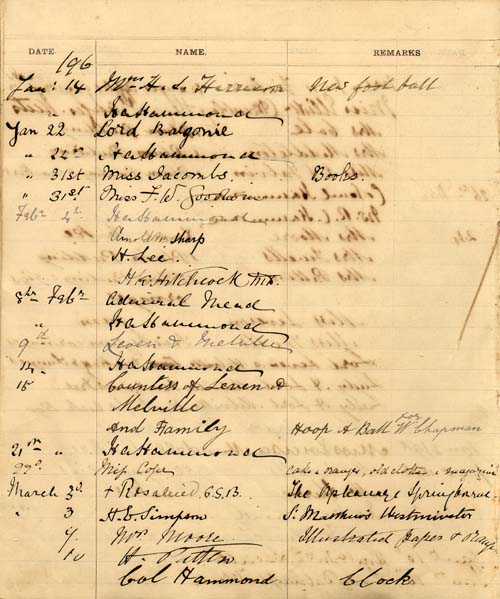 DATE. NAME. REMARKS
196
Jan: 14 Mrs H. S. Harrison New foot ball
" Ha Hammond
Jan 22 Lord Balgonie
" 22nd Ha Hammond
" 31st Miss Jacombs. Books
" 31st Miss F. W. Goodwin
Febr 4th Ha Hammond
Arnold W. Sharp
H. Lee.
H. E. Hitchcock
8th Febr Admiral Mead
" Ha Hammond
9th Leven & Melville
14 Ha Hammond
15 Countess of Leven &
Melville
and Family Hoop & Ball for W Chapman
21st " Ha Hammond
22d. Miss Cope Cake & oranges, old clothes & magazines
March 3d. + Rosalind. C.S.B. The
" 3 H. E. Simpson S. Matthew's Westminster
4. Mrs Moore Illustrated Papers &
10 H. Patten
Col Hammond Clock